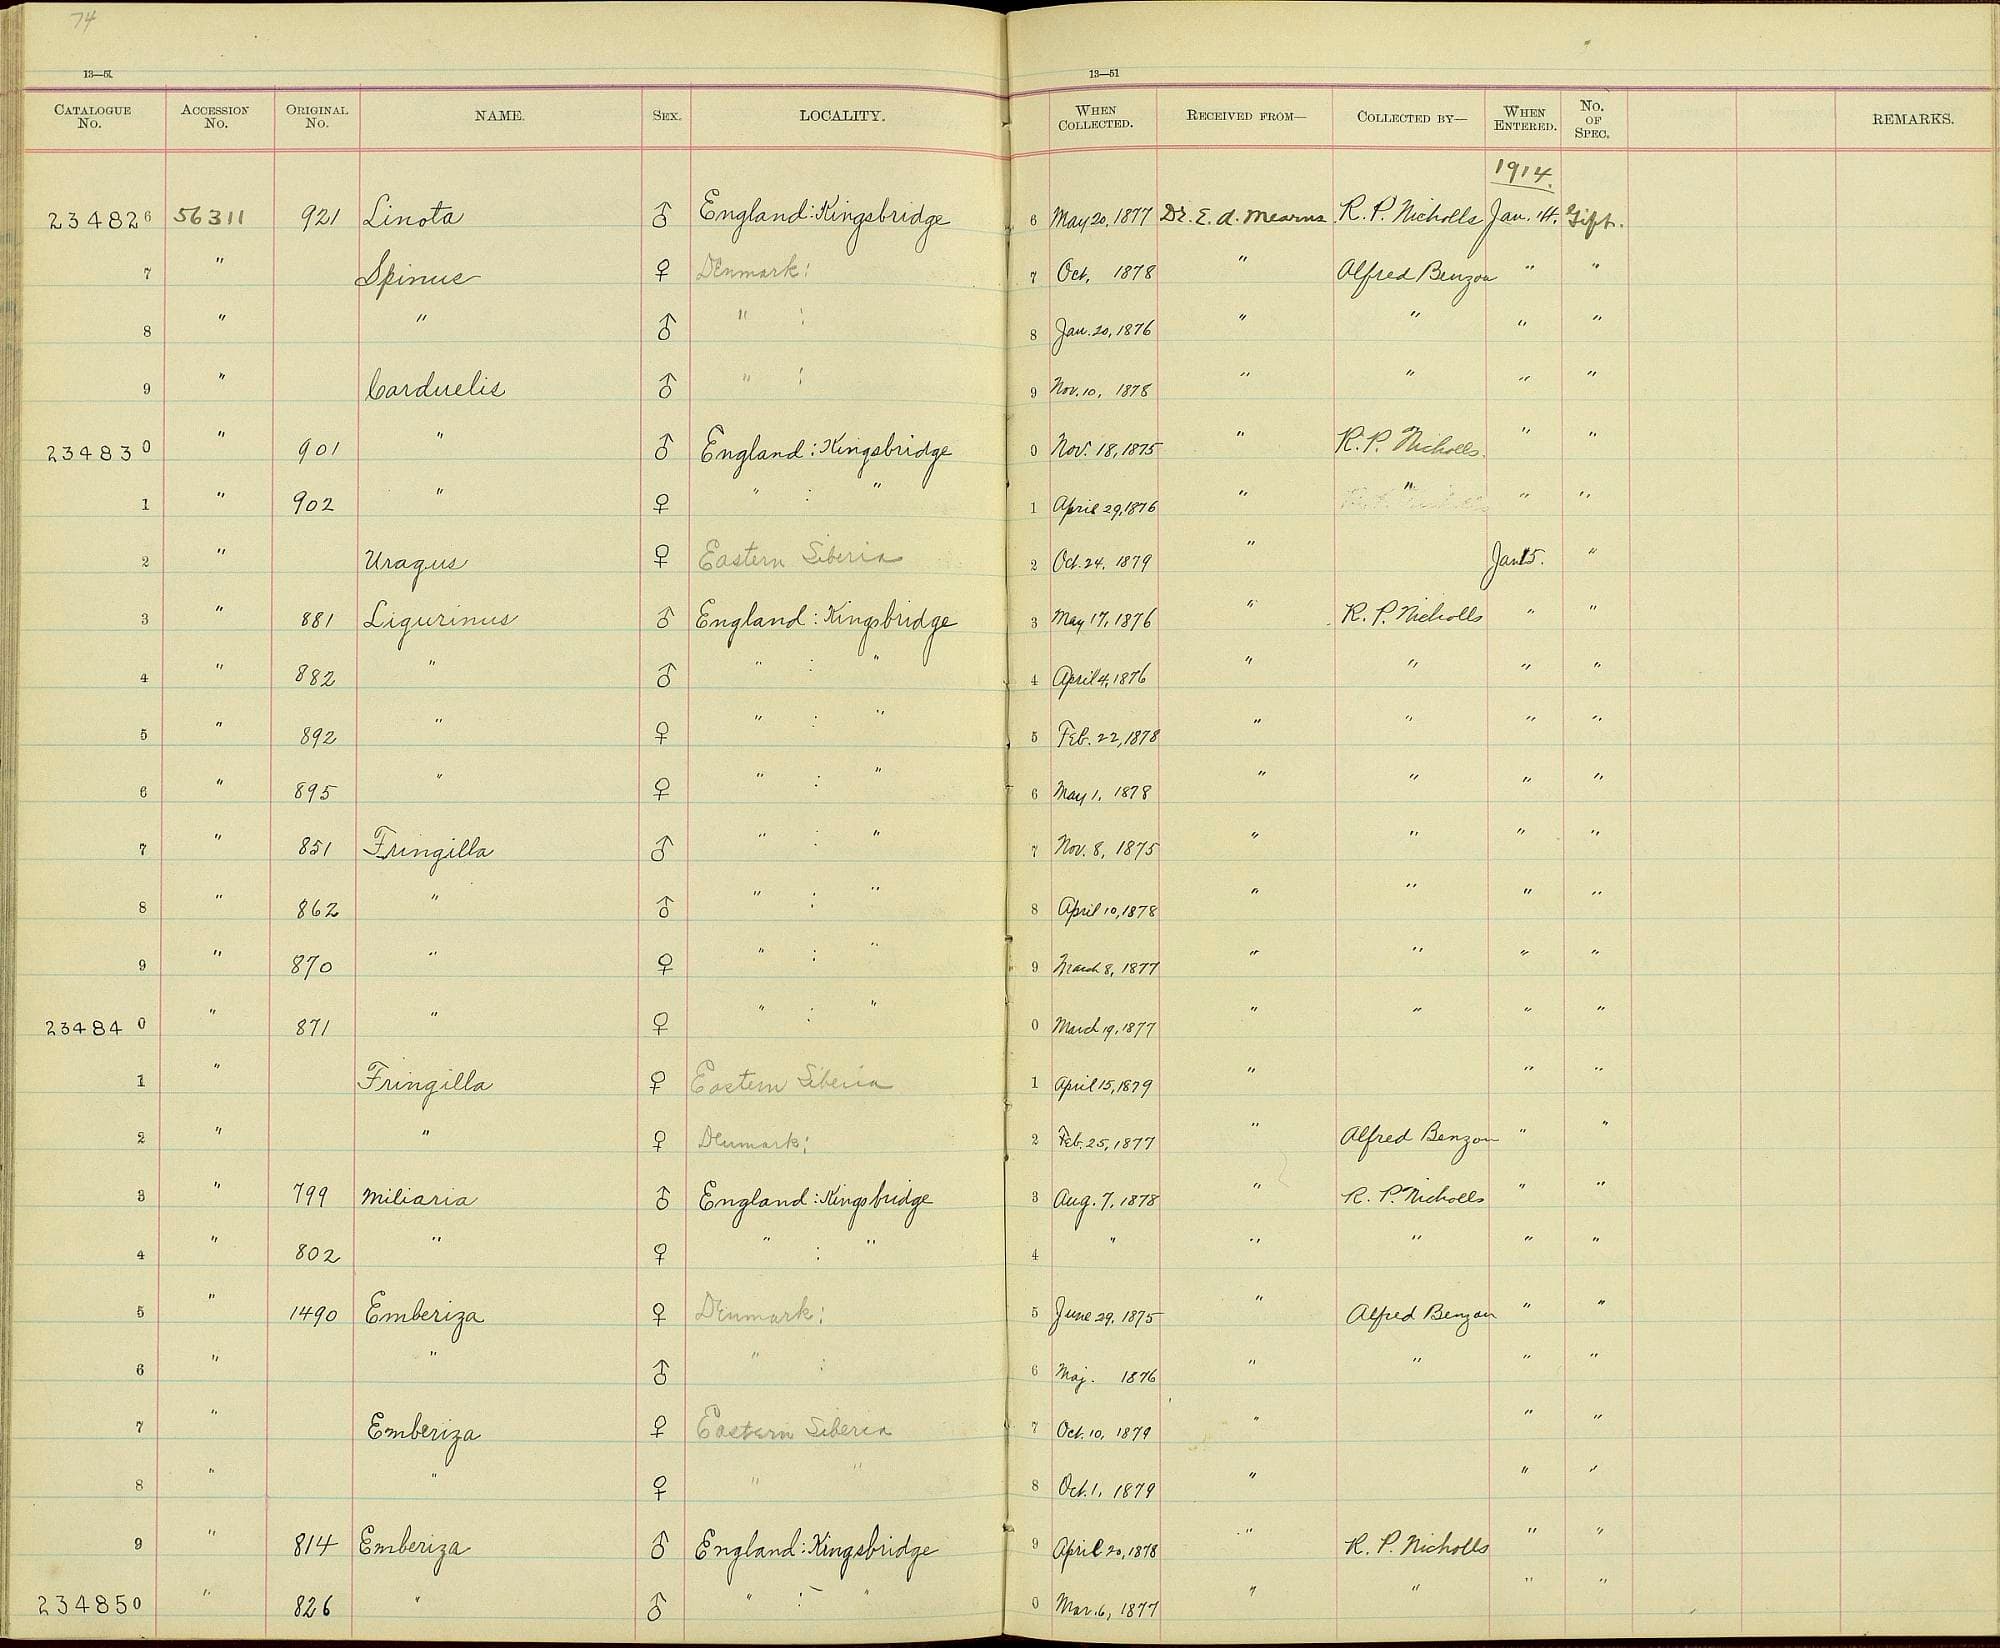 74
13—51 13—51
Catalogue No. Accession No. Original No. NAME. Sex. LOCALITY. When Collected. Received from— Collected by— When Entered. No. of Spec. REMARKS.
1914.
234826 56311 921 Linota ♂ England: Kingsbridge 6 May 20, 1877 Dr. E. A. Mearns R. P. Nicholls Jan. 14. Gift.
7 " Spinus ♀ Denmark: 7 Oct. 1878 " Alfred Benzon " "
8 " " ♂ " : 8 Jan. 20, 1876 " " " "
9 " Carduelis ♂ " : 9 Nov. 10, 1878 " " " "
234830 " 901 " ♂ England: Kingsbridge 0 Nov. 18, 1875 " R. P. Nicholls. " "
1 " 902 " ♀ " : " 1 April 29, 1876 " " " "
2 " Uragus ♀ Eastern Siberia 2 Oct. 24, 1879 " Jan 15. "
3 " 881 Ligurinus ♂ England: Kingsbridge 3 May 17, 1876 " R. P. Nicholls " "
4 " 882 " ♂ " : " 4 April 4, 1876 " " " "
5 " 892 " ♀ " : " 5 Feb. 22, 1878 " " " "
6 " 895 " ♀ " : " 6 May 1, 1878 " " " "
7 " 851 Fringilla ♂ " : " 7 Nov. 8, 1875 " " " "
8 " 862 " ♂ " : " 8 April 10, 1878 " " " "
9 " 870 " ♀ " : " 9 March 8, 1877 " " " "
234840 " 871 " ♀ " : " 0 March 19, 1877 " " " "
1 " Fringilla ♀ Eastern Siberia 1 April 15, 1879 " " "
2 " " ♀ Denmark: 2 Feb. 25, 1877 " Alfred Benzon " "
3 " 799 Miliaria ♂ England: Kingsbridge 3 Aug. 7, 1878 " R. P. Nicholls " "
4 " 802 " ♀ " : " 4 " " " " "
5 " 1490 Emberiza ♀ Denmark: 5 June 29, 1875 " Alfred Benzon " "
6 " " ♂ " : 6 Maj. 1876 " " " "
7 " Emberiza ♀ Eastern Siberia 7 Oct. 10, 1879 " " "
8 " " ♀ " " 8 Oct. 1, 1879 " " "
9 " 814 Emberiza ♂ England: Kingsbridge 9 April 20, 1878 " R. P. Nicholls " "
234850 " 826 " ♂ " : " 0 Mar. 6, 1877 " " " "